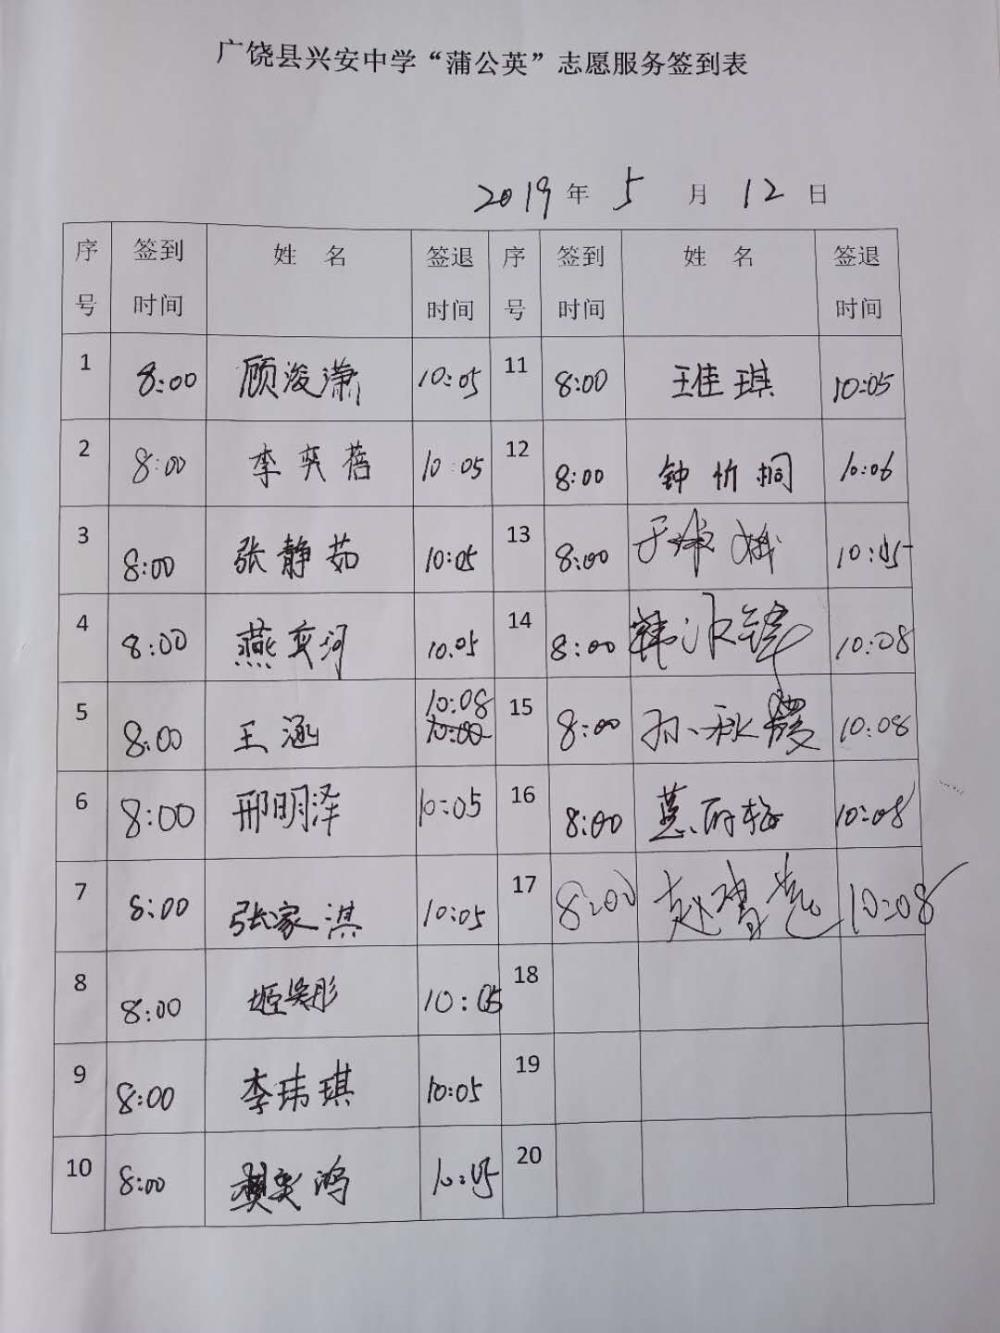 广饶县兴安中学“蒲公英”志愿服务签到表
2019年5月12日
序号 签到时间 姓名 签退时间 序号 签到时间 姓名 签退时间
1 8:00 顾浚潇 10:05 11 8:00 王佳琪 10:05
2 8:00 李奕蓓 10:05 12 8:00 钟忻桐 10:06
3 8:00 张静茹 10:05 13 8:00 于 10:05
4 8:00 燕奕河 10.05 14 8:00 韩 10:08
5 8:00 王涵 10:08 15 8:00 孙秋霞 10:08
6 8:00 邢明泽 10:05 16 8:00 10:08
7 8:00 张家淇 10:05 17 8:00 赵 10:08
8 8:00 姬奂彤 10:05 18
9 8:00 李玮琪 10:05 19
10 8:00 樊奕鸿 10:05 20